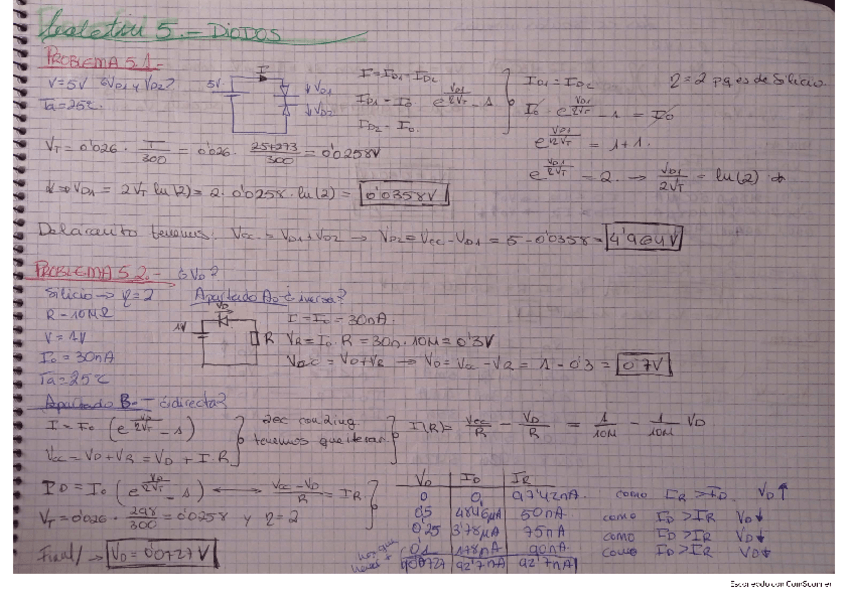 Boletín 5.- DIODOS
PROBLEMA 5.1.-
V=5V ¿VD1 y VD2?
Ta=25ºC
5V I ↓VD1 ↓VD2
I=ID1=ID2
ID1=I0·e^(VD1/2VT)-1
ID2=I0.
ID1=ID2
I0·e^(VD1/2VT)-1=I0
e^(VD1/2VT)=1+1.
e^(VD1/2VT)=2.→VD1/2VT=ln(2)
η=2 pq es de Silicio.
VT=0'026·T/300=0'026·(25+273)/300=0'0258V
VD1=2VT ln(2)=2·0'0258·ln(2)=0'0358V
tenemos: Vcc=VD1+VD2→VD2=Vcc-VD1=5-0'0358=4'964V
PROBLEMA 5.2.- ¿VD?
Silicio→η=2
R=10MΩ
V=1V
I0=30nA
Ta=25ºC
Apartado A.- ¿inversa?
1V VD R
I=I0=30nA.
VR=I0·R=30n·10M=0'3V
Vcc=VD+VR→VD=Vcc-VR=1-0'3=0'7V
Apartado B.- ¿directa?
I=I0(e^(VD/2VT)-1)
Vcc=VD+VR=VD+I·R
2ec
tenemos que iterar.
I(R)=Vcc/R-VD/R=1/10M-1/10M VD
ID=I0(e^(VD/2VT)-1)↔(Vcc-VD)/R=IR
VT=0'026·298/300=0'0258 y η=2
Final/→VD=0'0727V
VD ID IR
0 0 97'42nA. como IR>ID. VD↑
0,5 50nA como ID>IR VD↓
0'25 3'78µA 75nA como ID>IR VD↓
0,1 178nA 90nA como ID>IR VD↓
0'0727 92'7nA 92'7nA
Escaneado con CamScanner